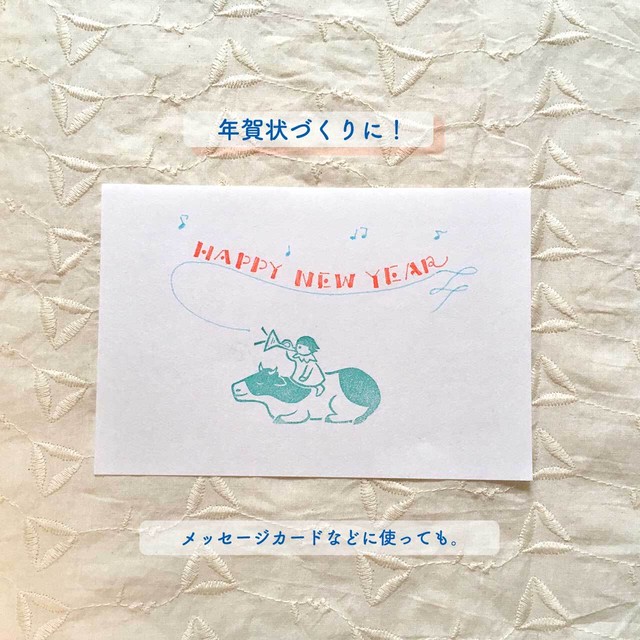 年賀状づくりに！
HAPPY NEW YEAR
メッセージカードなどに使っても。